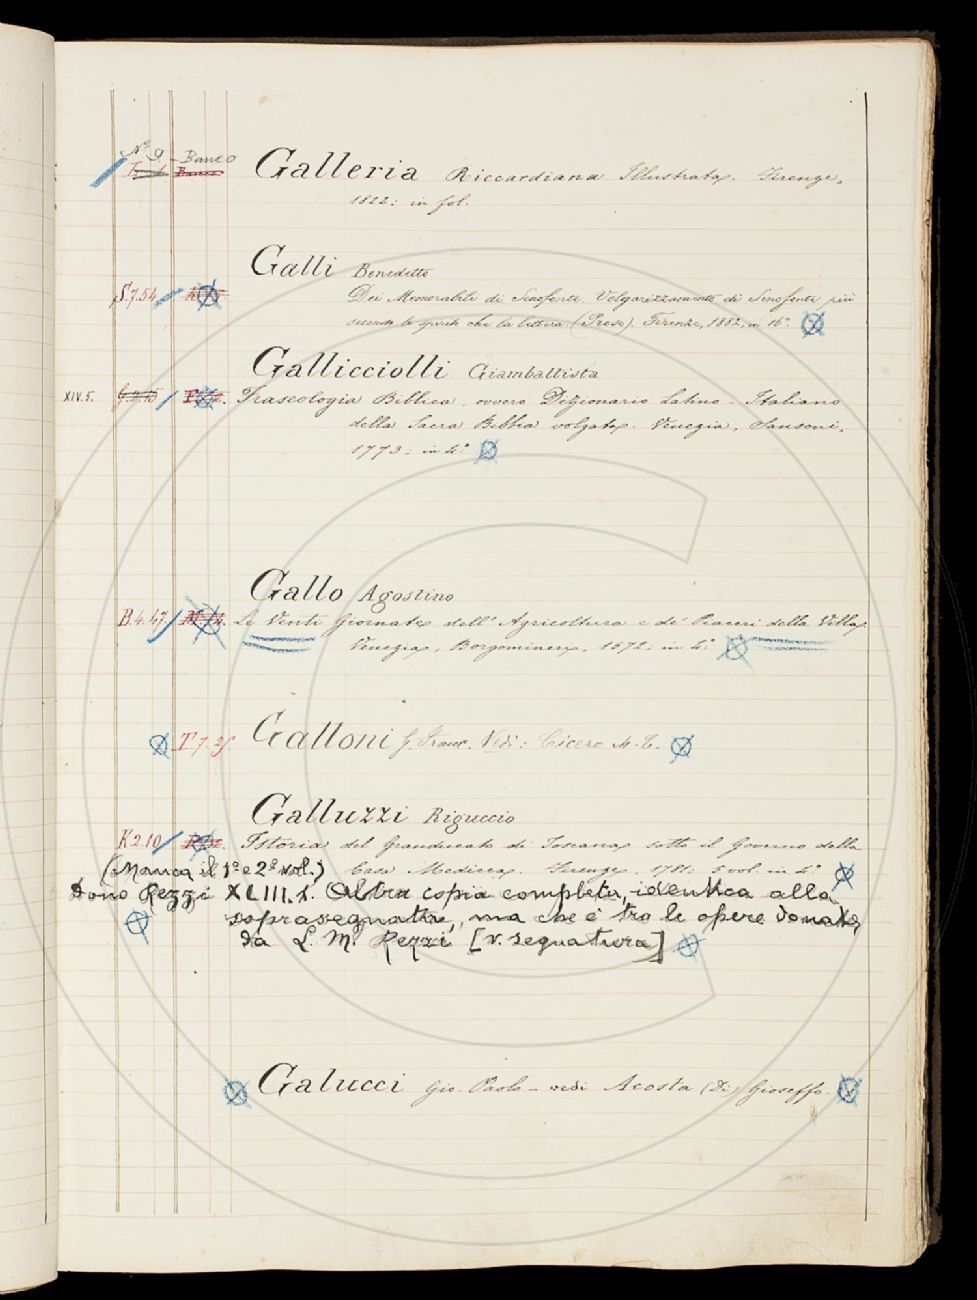 Nº 9 - Banco
Galleria Riccardiana Illustrata. Firenze,
1822: in fol.
Galli Benedetto
S.7.54 Dei Memorabili di Senofonte. Volgarizzamento di Senofonte più
secondo lo spirito che la lettera. (Prose). Firenze, 1882, in 16º.
Gallicciolli Giambattista
XIV.5. Fraseologia Biblica, ovvero Dizionario Latino - Italiano
della Sacra Bibbia volgata. Venezia, Sansoni,
1773: in 4º
Gallo Agostino
B.4.47. Le Venti Giornate dell' Agricoltura e de' Piaceri della Villa
Venezia, Borgomineri, 1572: in 4º
T.7. Galloni G. Franc. Vedi: Cicero M. T.
Galluzzi Riguccio
K.2.10 Istoria del Granducato di Toscana sotto il Governo della
(Manca il 1º e 2º vol.) Casa Medicea. Firenze, 1781: 5 vol. in 4º
Dono Rezzi XLIII.1. Altra copia completa, identica alla
soprasegnata, ma che è tra le opere donate
da L. M. Rezzi [v. segnatura]
Galucci Gio. Paolo - vedi Acosta (di) Gioseffo.